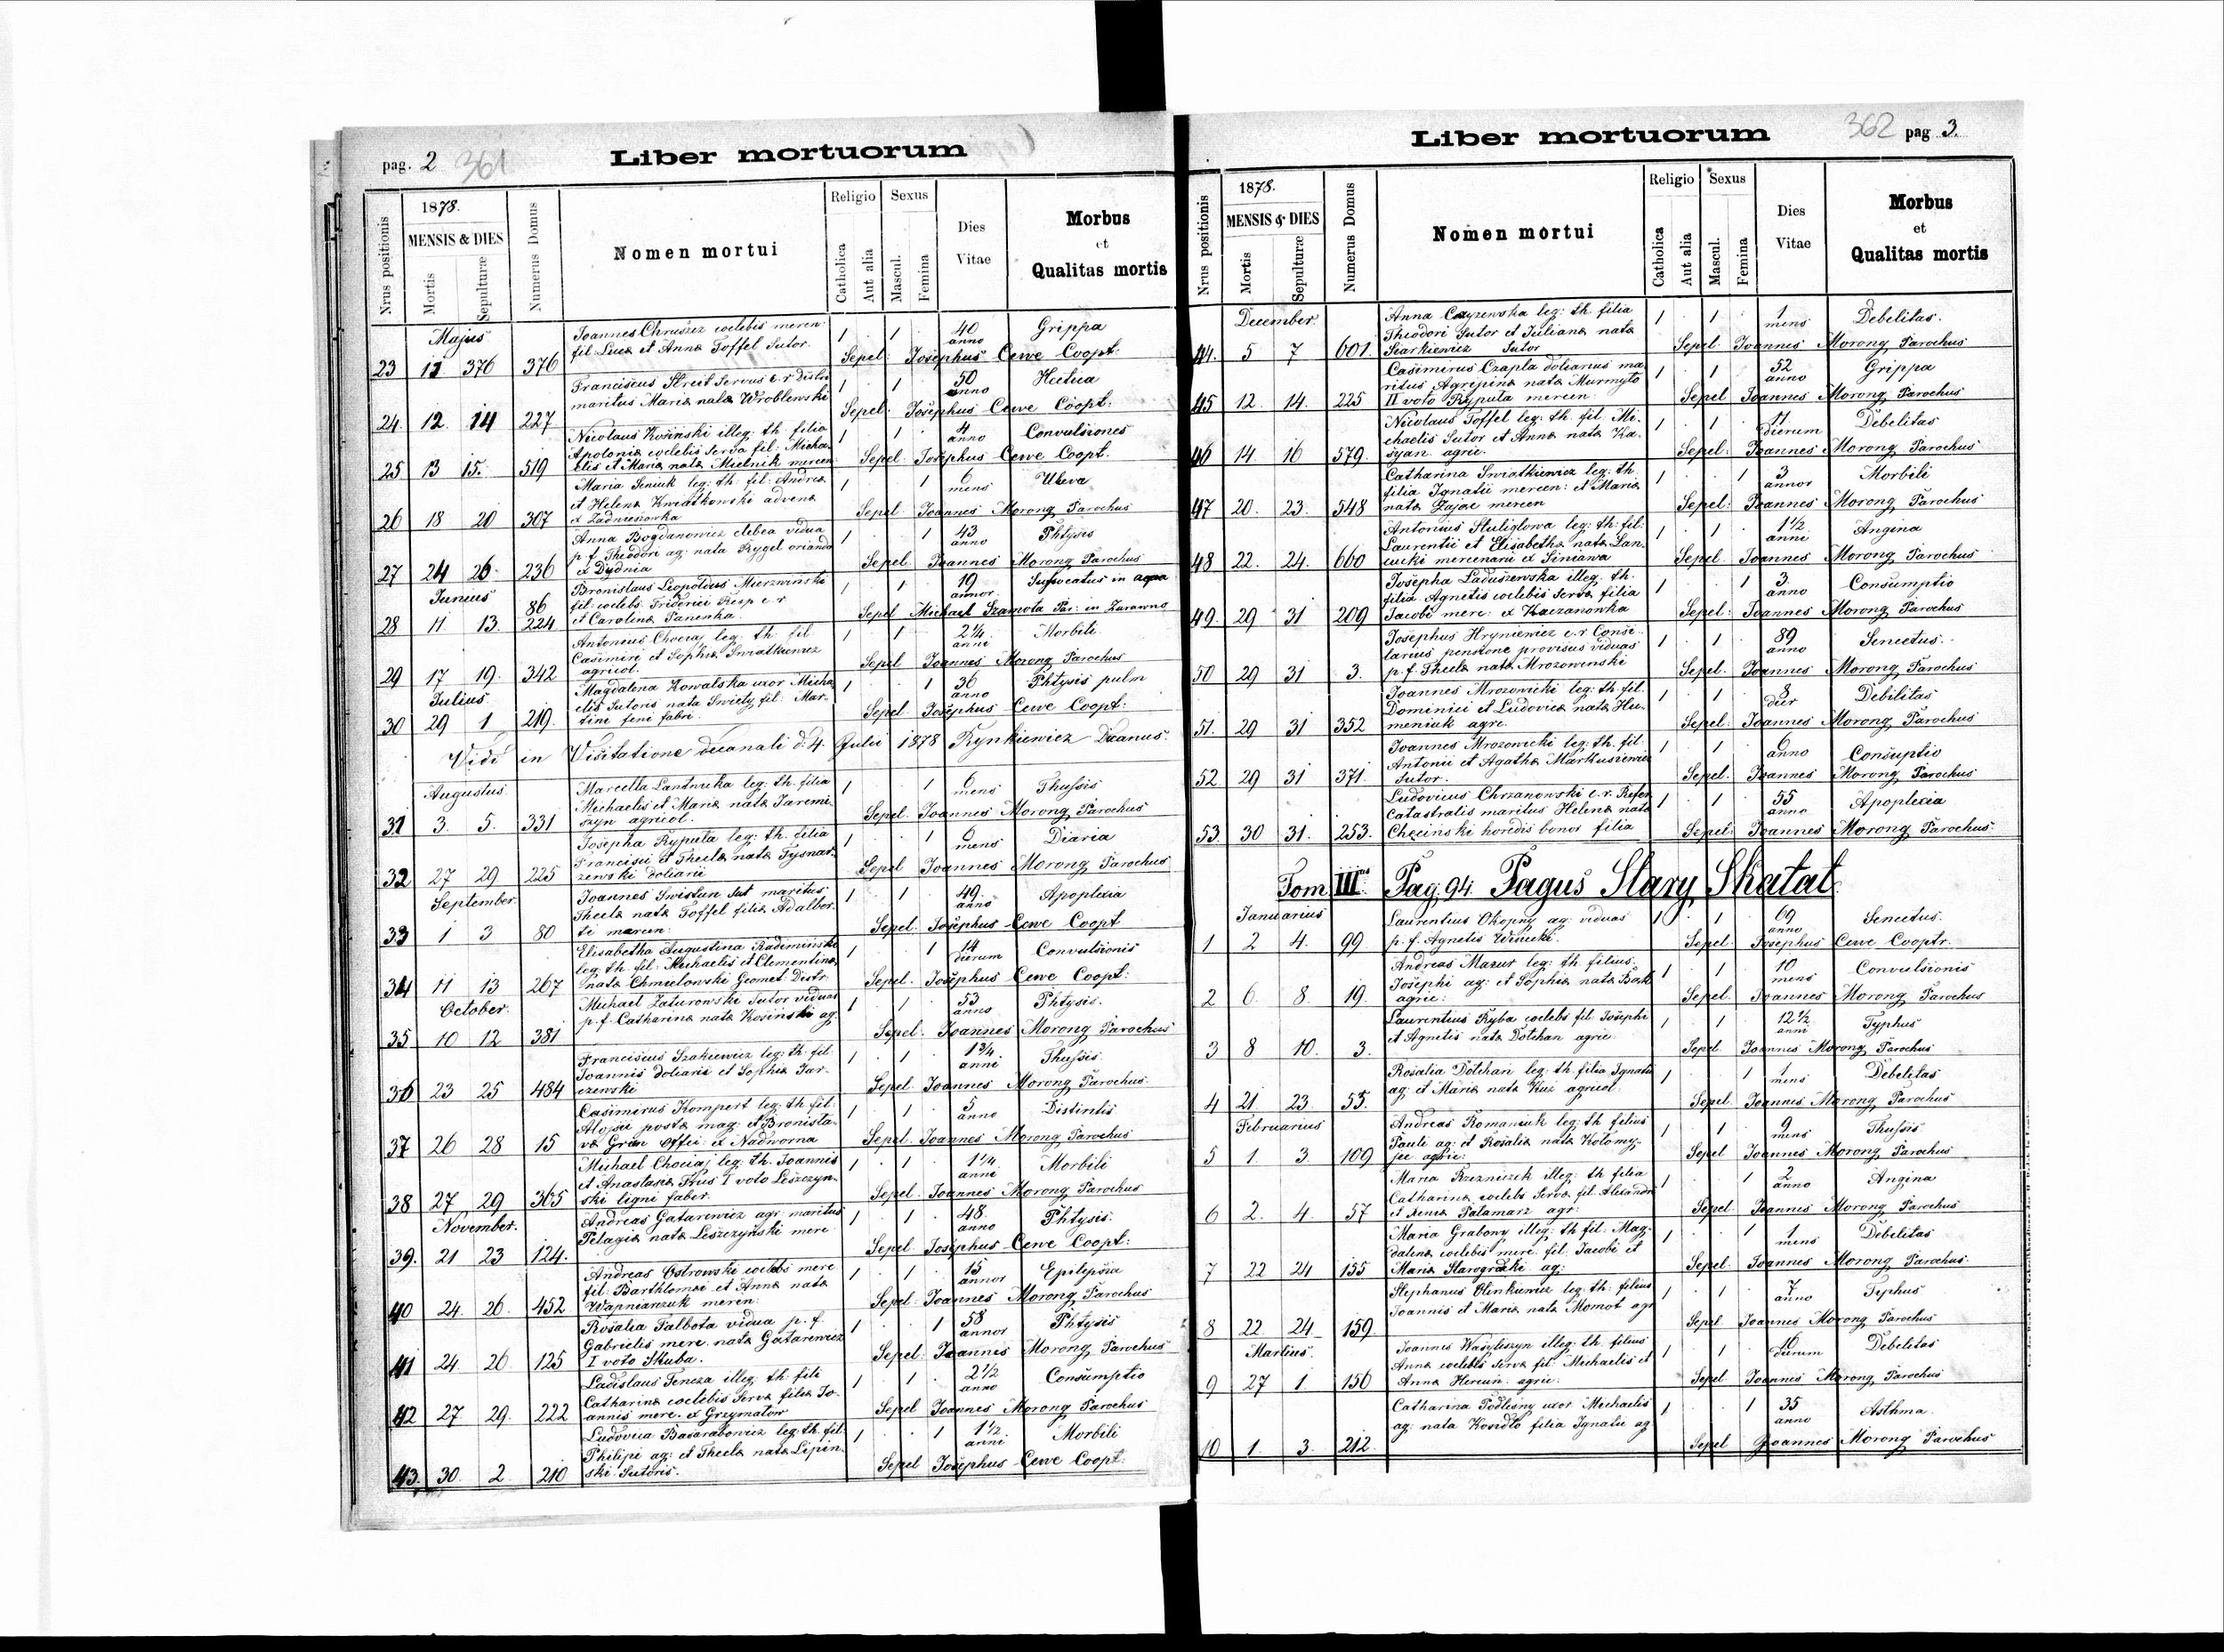 pag. 2 361
Liber mortuorum
Nrus positionis
1878.
MENSIS & DIES
Mortis
Sepulturæ
Numerus Domus
Nomen mortui
Religio
Catholica
Aut alia
Sexus
Mascul.
Femina
Dies
Vitae
Morbus
et
Qualitas mortis
Majus
Joannes Chruszcz coelebis meren:
fil Luca et Anna Toffel Sutor.
1 1 40 anno Grippa
23 11 376 376 Sepel: Josephus Cewe Coopt:
Franciscus Streit Servus c. r Distri
maritus Maria nata Wroblewski
1 1 50 anno Hectica
24 12 14 227 Sepel: Josephus Cewe Coopt:
Nicolaus Kosinski illeg: th. filia
Apolonia coelebis Serva fil: Micha-
elis et Maria nata Mielnik meren
1 1 4 anno Convulsiones
25 13 15. 519 Sepel: Josephus Cewe Coopt.
Maria Seniuk leg: th: fil: Andrea
et Helena Kwiatkowski advena
1 1 6 mens Ulcva
26 18 20 307 Sepel Joannes Morong Parochus
Anna Bogdanowicz vidua
p. f. Theodori ag: nata Rygel orianda
ex Dydnia
1 1 43 anno Phtysis
27 24 26 236 Sepel Joannes Morong Parochus
Junius
Bronislaus Leopoldus Mierzwinski
fil: coelebs Friderici Resp c. r
et Carolina Panenka.
1 1 19 annor. Sufocatus in aqua
28 11 13. 86 224 Sepel Michael Szamota Par: in Zurawno
Antonius Chociaj leg: th fil
Casimiri et Sophia Swiatkiewicz
agricol.
1 1 2¼ anni Morbili
29 17 19. 342 Sepel Joannes Morong Parochus
Julius
Magdalena Kowalska uxor Micha
elis Sutoris nata Swiety fil: Mar-
tini feni fabri.
1 1 36 anno Phtysis pulm
30 29 1 219. Sepel Josephus Cewe Coopt:
Vidi in Visitatione decanali d: 4. Julii 1878 Rynkiewicz Decanus.
Augustus
Marcella Lantucka leg: th. filia
Michaelis et Maria nata Jaremi-
szyn agricol.
1 1 6 mens Thussis
31 3. 5. 331 Sepel: Joannes Morong Parochus
Josepha Ryputa leg: th. filia
Francisci et Thecla nata Tysnar-
zewski doliarii
1 1 6 mens Diaria
32 27 29 225 Sepel Joannes Morong Parochus
September
Joannes Swistun Sut maritus
Thecla nata Toffel filia Adalber-
ti meren:
1 1 49. anno Apoplexia
33 1 3 80 Sepel: Josephus Cewe Coopt
Elisabetha Augustina Radiminska
leg: th. fil: Michaelis et Clementina
nata Chmielowski Geomet: Distr.
1 1 14 dierum Convulsionis
34 11 13 267 Sepel: Josephus Cewe Coopt:
October.
Michael Zaturowski Sutor viduus
p. f. Catharina nata Kosinski ag
1 1 53 anno Phtysis.
35 10 12 381 Sepel: Joannes Morong Parochus
Franciscus Szakiewicz leg: th: fil
Joannis doliarii et Sophia Jar-
czewski
1 1 1¾ anni Thussis.
36 23 25 484 Sepel Joannes Morong Parochus.
Casimirus Kompert leg: th fil:
Aloisii posta mag: et Bronisla-
va Grün offic: ex Nadworna
1 1 5 anno Distintis
37 26 28 15 Sepel Joannes Morong Parochus
Michael Chociaj leg: th. Joannis
et Anastasia Prus I voto Leszczyn-
ski ligni faber.
1 1 1¼ anni Morbili
38 27 29 365 Sepel Joannes Morong Parochus
November.
Andreas Gatarewicz agr: maritus
Pelagia nata Leszczyński mere
1 1 48. anno Phtysis.
39. 21 23 124. Sepel Josephus Cewe Coopt:
Andreas Ostrowski coelebs mere
fil: Barthlomei et Anna nata
Wapniarczuk meren:
1 1 15 annor Epilepsia
40 24. 26. 452 Sepel: Joannes Morong Parochus
Rosalia Talbota vidua p. f.
Gabrielis mere. nata Gatarewicz
I voto Skuba.
1 1 58 annor Phtysis
41 24. 26. 125 Sepel: Joannes Morong Parochus
Ladislaus Seneza illeg: th: fili
Catharina coelebis Serva filia Jo-
annis mere. ex Grzymatow
1 1 2½ anno Consumptio
42 27 29. 222 Sepel Joannes Morong Parochus
Ludovica Basarabowicz leg: th. fil:
Philipi ag: et Thecla nata Lipin-
ski Sutoris.
1 1 1½ anni Morbili
43. 30. 2. 210 Sepel Josephus Cewe Coopt:
Liber mortuorum
362 pag 3.
Nrus positionis
1878.
MENSIS & DIES
Mortis
Sepulturæ
Numerus Domus
Nomen mortui
Religio
Catholica
Aut alia
Sexus
Mascul.
Femina
Dies
Vitae
Morbus
et
Qualitas mortis
December.
Anna Czyzewska leg: th. filia
Theodori Sutor et Juliana nata
Siarkiewicz Sutor
1 1 1 mens Debelitas.
44. 5 7 601. Sepel Joannes Morong Parochus
Casimirus Czapla doliarius ma
ritus Agripina nata Murmyto
II voto Ryputa meren:
1 1 52 anno Grippa
45 12. 14. 225 Sepel Joannes Morong Parochus
Nicolaus Toffel leg: th. fil. Mi-
chaelis Sutor et Anna nata Ka-
syan. agric.
1 1 11 dierum Debelitas
46 14. 16 579. Sepel: Joannes Morong Parochus
Catharina Swiatkiewicz leg: th.
filia Ignatii meren: et Maria
nata Zajac meren
1 1 3 annor Morbili
47 20. 23. 548 Sepel: Joannes Morong Parochus
Antonius Stuliglowa leg: th: fil:
Laurentii et Elisabetha nata Lan-
cucki mercenarii ex Siniawa
1 1 1½ anni Angina
48 22. 24. 660 Sepel: Joannes Morong Parochus
Josepha Laduszewska illeg: th.
filia Agnetis coelebis Serva filia
Jacobi mere: ex Kaczanowka
1 1 3. anno Consumptio
49. 29 31 209 Sepel: Joannes Morong Parochus
Josephus Hryniewicz c. r Conse-
larius pensione provisus viduus
p. f. Thecla nata Mrozowinski
1 1 89 anno Senectus.
50 29 31 3. Sepel: Joannes Morong Parochus
Joannes Mrozowicki leg: th. fil.
Dominici et Ludovica nata Hu-
meniuk agric.
1 1 8 dier Debilitas
51. 29 31 352 Sepel: Joannes Morong Parochus
Joannes Mrozowicki leg: th. fil
Antonii et Agatha Markusiewicz
Sutor.
1 1 6 anno Consuptio
52. 29 31 371. Sepel: Joannes Morong Parochus
Ludovicus Chrzanowski c. r. Refer
Catastralis maritus Helena nata
Chęcinski horedis bonor filia
1 1 55 anno Apoplexia
53. 30 31. 253. Sepel: Joannes Morong Parochus
Tom III Pag. 94. Pagus Stary Skatat.
Januarius
Laurentius Okopny ag: viduus
p. f. Agnetis Winicki.
1 1 69 anno Senectus.
1 2 4. 99 Sepel Josephus Cewe Cooptr.
Andreas Mazur leg: th. filius
Josephi ag: et Sophia nata Bak
agric:
1 1 10 mens Convulsionis
2 6 8. 19. Sepel Joannes Morong Parochus
Laurentius Ryba coelebs fil Josephi
et Agnetis nata Dotchan agric
1 1 12½ anni Typhus
3 8 10. 3. Sepel. Joannes Morong Parochus
Rosalia Dotchan leg: th. filia Ignatii
ag: et Maria nata Kuz agricol.
1 1 1 mens Debelitas
4 21 23. 55. Sepel: Joannes Morong Parochus
Februarius
Andreas Romaniuk leg: th filius
Pauli ag: et Rosalia nata Kolomy-
jec agric:
1 1 9 mens Thussis
5 1. 3. 109 Sepel Joannes Morong Parochus
Maria Rzezniczek illeg: th filia
Catharina coelebs Serva fil: Alexandri
et Xenia Palamarz agr:
1 1 2 anno Angina
6 2. 4. 57 Sepel Joannes Morong Parochus
Maria Grabony illeg: th. fil. Mag-
dalena coelebis mere. fil. Jacobi et
Maria Starogradzki ag:
1 1 1 mens Debelitas
7 22 24 155 Sepel Joannes Morong Parochus.
Stephanus Olinkiewicz leg: th: filius
Joannis et Maria nata Momot agr
1 1 7 anno Typhus
8 22 24 159 Sepel Joannes Morong Parochus
Martius.
Joannes Wasyliszyn illeg: th. filius
Anna coelebis Serva fil: Michaelis et
Anna Hereun. agric.
1 1 16 dierum Debelitas
9 27 1. 150 Sepel Joannes Morong Parochus
Catharina Podlesny uxor Michaelis
ag: nata Kosidlo filia Ignatii ag
1 1 35 anno Asthma.
10 1. 3. 212. Sepel Joannes Morong Parochus